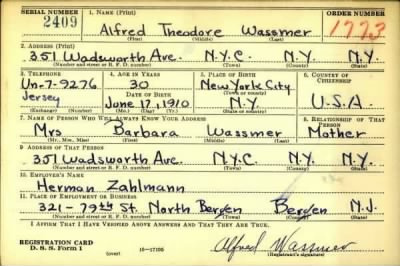 SERIAL NUMBER 1. NAME (Print) ORDER NUMBER
2409 Alfred Theodore Wassmer 1773
(First) (Middle) (Last)
2. ADDRESS (Print)
351 Wadsworth Ave. N.Y.C. N.Y. N.Y.
(Number and street or R. F. D. number) (Town) (County) (State)
3. TELEPHONE 4. AGE IN YEARS 5. PLACE OF BIRTH 6. COUNTRY OF CITIZENSHIP
Un-7-9276 30 New York City
DATE OF BIRTH (Town or county)
Jersey June 17, 1910 N.Y. U.S.A.
(Exchange) (Number) (Mo.) (Day) (Yr.) (State or country)
7. NAME OF PERSON WHO WILL ALWAYS KNOW YOUR ADDRESS 8. RELATIONSHIP OF THAT PERSON
Mrs Barbara Wassmer Mother
(Mr., Mrs., Miss) (First) (Middle) (Last)
9. ADDRESS OF THAT PERSON
351 Wadsworth Ave. N.Y.C. N.Y. N.Y.
(Number and street or R. F. D. number) (Town) (County) (State)
10. EMPLOYER'S NAME
Herman Zahlmann
11. PLACE OF EMPLOYMENT OR BUSINESS
321 - 79th St. North Bergen Bergen N.J.
(Number and street or R. F. D. number) (Town) (County) (State)
I AFFIRM THAT I HAVE VERIFIED ABOVE ANSWERS AND THAT THEY ARE TRUE.
REGISTRATION CARD
D. S. S. Form 1 (over) 16-17105 Alfred Wassmer
(Registrant's signature)